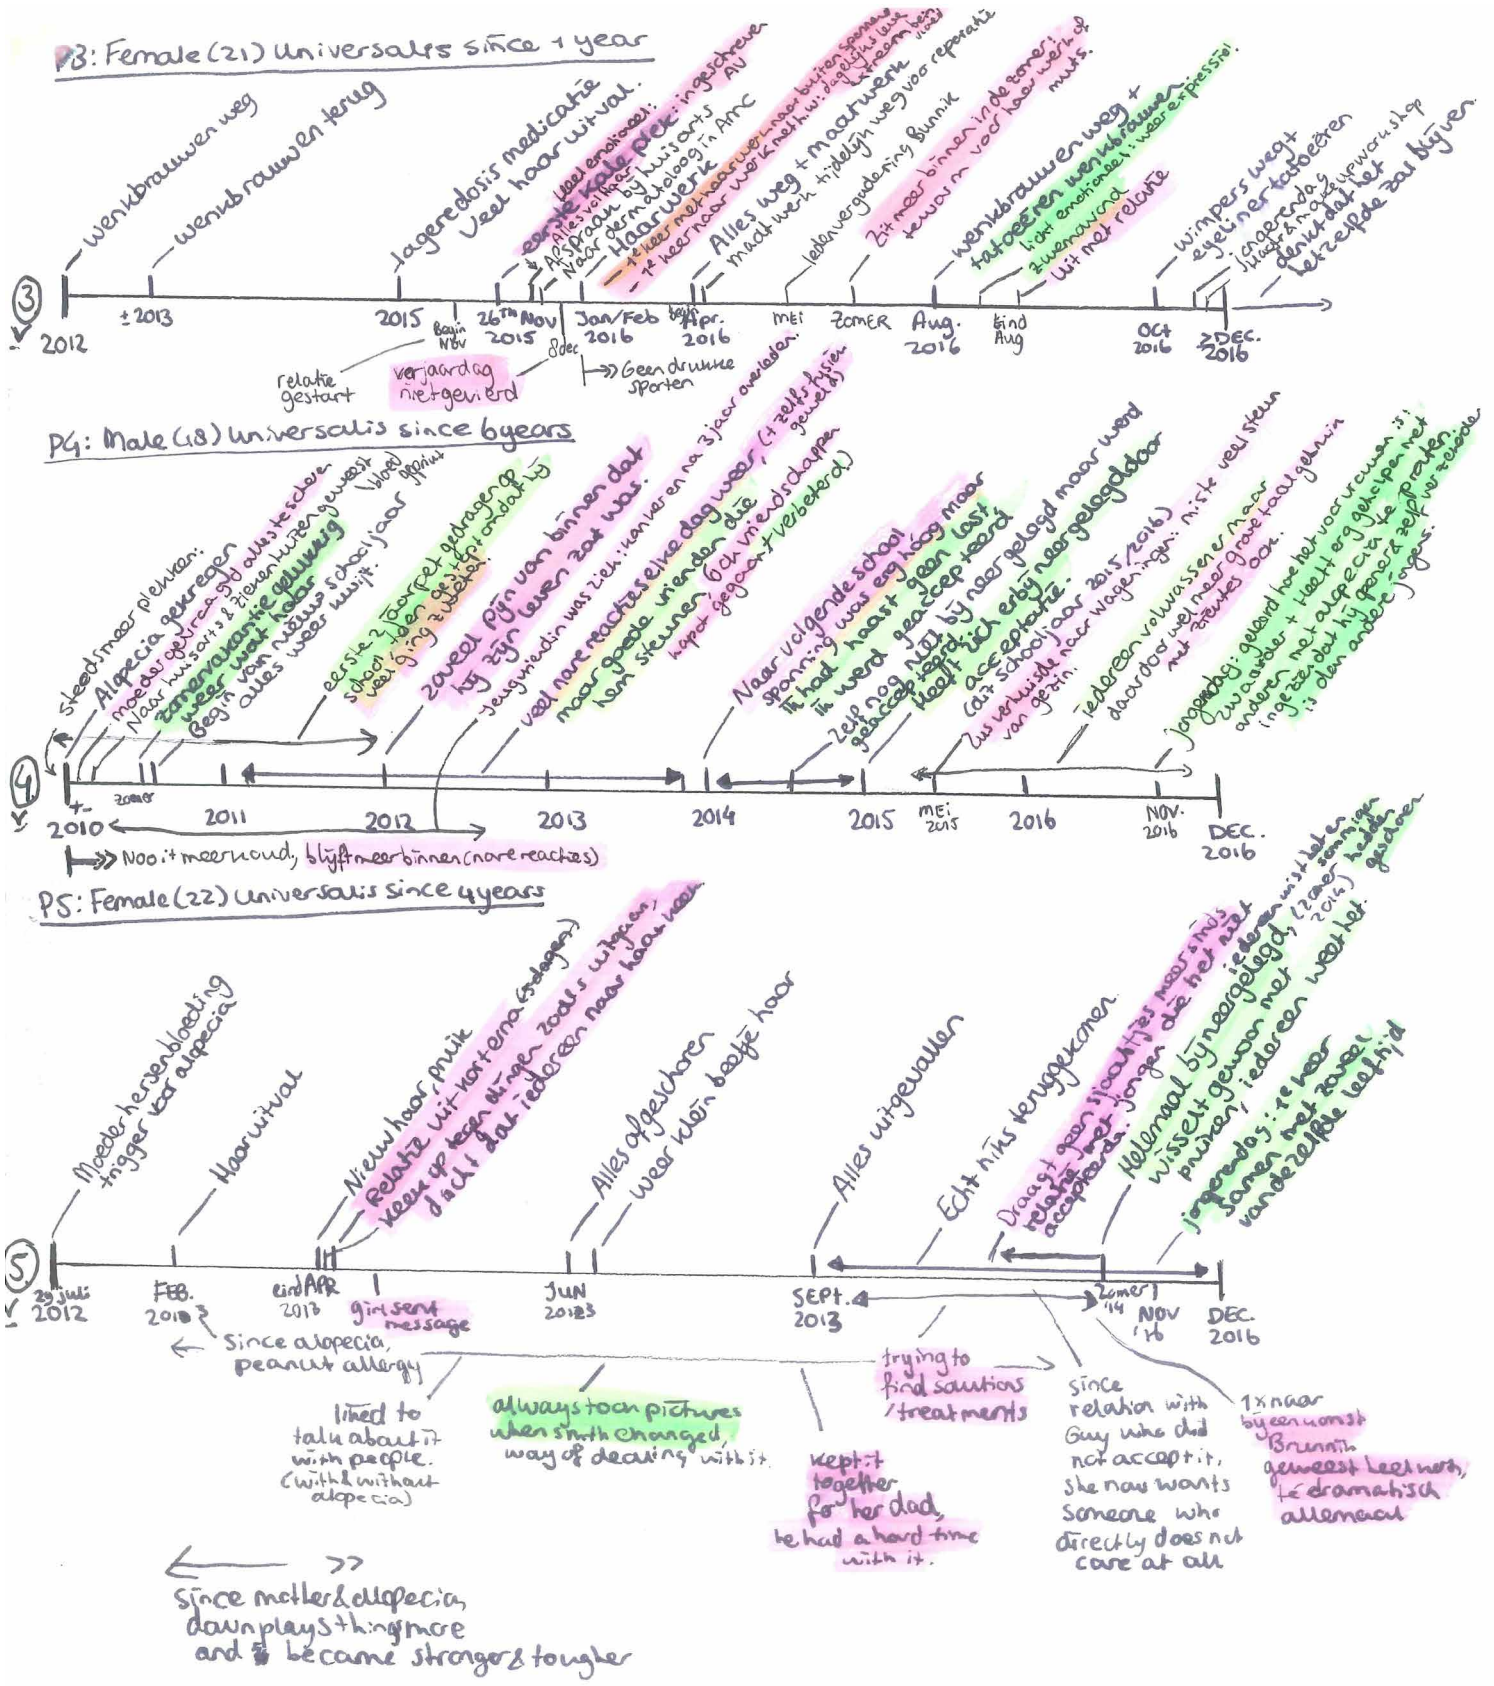 P3: Female (21) Universalis since ± 1 year
wenkbrauwen weg
wenkbrauwen terug
lagere dosis medicatie
veel haar uitval.
veel emotioneel:
eerste kale plek: ingeschreven
AV
Alles vol haar
Afspraak bij huisarts
Naar dermatoloog in AMC
Haarwerk
- 1e keer met haarwerk naar buiten, spannend
- 1e keer naar werk met h.w: dagelijks leven
extreem
Alles weg + maatwerk
maatwerk tijdelijk weg voor reperatie
ledenvergadering Bunnik
Zit meer binnen in de zomer:
te warm voor haarwerk of
muts.
wenkbrauwen weg +
tatoeëren wenkbrauwen
licht emotioneel: weer expressie!
zwemavond
Uit met relatie
wimpers weg +
eyeliner tatoeëren
jongerendag
Haar & make up workshop
denkt dat het
hetzelfde zal blijven
3
2012
± 2013
2015
Begin
Nov
26TH Nov
2015
8 dec
Jan/Feb
2016
begin
Apr.
2016
MEI
ZOMER
Aug.
2016
Eind
Aug
OCT
2016
DEC.
2016
relatie
gestart
verjaardag
niet gevierd
Geen drukke
sporten
P4: Male (18) Universalis since 6 years
steeds meer plekken:
Alopecia gekregen
moeder gextraagd alles te scheren
Naar huisarts & ziekenhuizen geweest
bloed
geprikt
zomervakantie gelukkig
weer wat haar
Begin van nieuw schooljaar
alles weer kwijt.
eerste 2 jaar pet gedragen op
school, toen gestopt omdat hij
veel ging zweten.
zoveel pijn van binnen dat
hij zijn leven zat was.
jeugvriendin was ziek: kanker en na 3 jaar overleden.
veel nare reacties elke dag weer, (+ zelfs fysiek
geweld)
maar goede vrienden die
hem steunen (ook vriendschappen
kapot gegaan + verbeterd)
Naar volgende school
spanning was erg hoog maar
Ik had haast geen last
Ik werd geaccepteerd
Zelf nog niet bij neer gelegd maar werd
geaccepteerd
Heeft zich erbij neergelegd door
acceptatie.
(dit schooljaar 2015/2016)
Zus verhuisde naar Wageningen: miste veel steun
van gezin.
iedereen volwassener maar
daardoor wel maar grove taal gebruik
met ziektes ook.
jongerendag: geleerd hoe het voor vrouwen is:
zwaarder + Heeft erg geholpen met
anderen met alopecia te praten.
ingezien dat hij opener & zelfverzekerder
is dan andere jongens.
4
+-
2010
zomer
2011
2012
2013
2014
2015
MEI
2015
2016
NOV.
2016
DEC.
2016
Nooit meer koud, blijft meer binnen (nare reacties)
P5: Female (22) Universalis since 4 years
Moeder hersenbloeding
trigger voor alopecia
Haaruitval
Nieuw haar, pruik
Relatie uit kort erna (5 dagen)
Keek op tegen dingen zoals uitgaan,
dacht dat iedereen naar haar keek
Alles afgeschoren
weer klein beetje haar
Alles uitgevallen
Echt niks teruggekomen
Draagt geen sjaaltjes meer sinds
relatie met jongen die het niet
accepteerde.
Helemaal bij neergelegd,
iedereen wist het en
(zomer 2014)
sommigen
hadden
geschoren
Wisselt gewoon met
pruiken, iedereen weet het.
jongerendag: 1e keer
samen met zoveel
van dezelfde leeftijd
5
29 juli
2012
FEB.
2013
eind APR
2013
girl sent
message
JUN
2013
SEPT.
2013
Zomer
'14
NOV
'16
DEC.
2016
Since alopecia,
peanut allergy
liked to
talk about it
with people.
(with & without
alopecia)
always took pictures
when smth changed,
way of dealing with it.
kept it
together
for her dad,
he had a hard time
with it.
trying to
find solutions
/treatments
since
relation with
Guy who did
not accept it,
she now wants
someone who
directly does not
care at all
1x naar
bijeenkomst
Bunnik
geweest heel heftig,
té dramatisch
allemaal
since mother & alopecia,
downplays things more
and became stronger & tougher